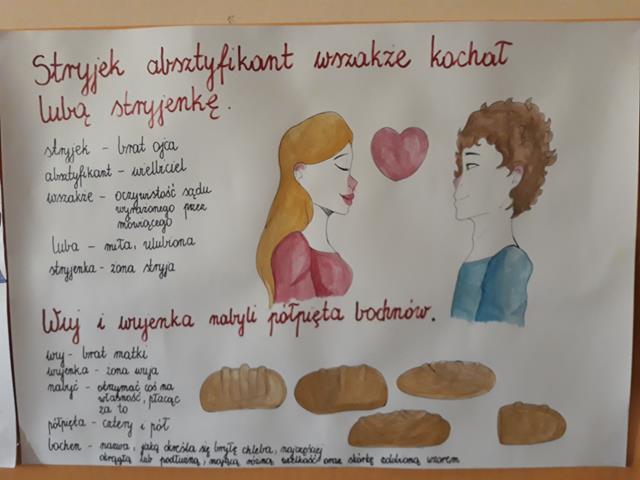 Stryjek absztyfikant wszakże kochał
lubą stryjenkę.
stryjek - brat ojca
absztyfikant - wielbiciel
wszakże - oczywistość sądu
wyrażonego przez
mówiącego
luba - miła, ulubiona
stryjenka - żona stryja
Wuj i wujenka nabyli półpięta bochnów.
wuj - brat matki
wujenka - żona wuja
nabyć - otrzymać coś na
własność, płacąc
za to
półpięta - cztery i pół
bochen - nazwa, jaką określa się bryłę chleba, najczęściej
okrągłą lub podłużną, mającą różną wielkość oraz skórkę zdobioną wzorem